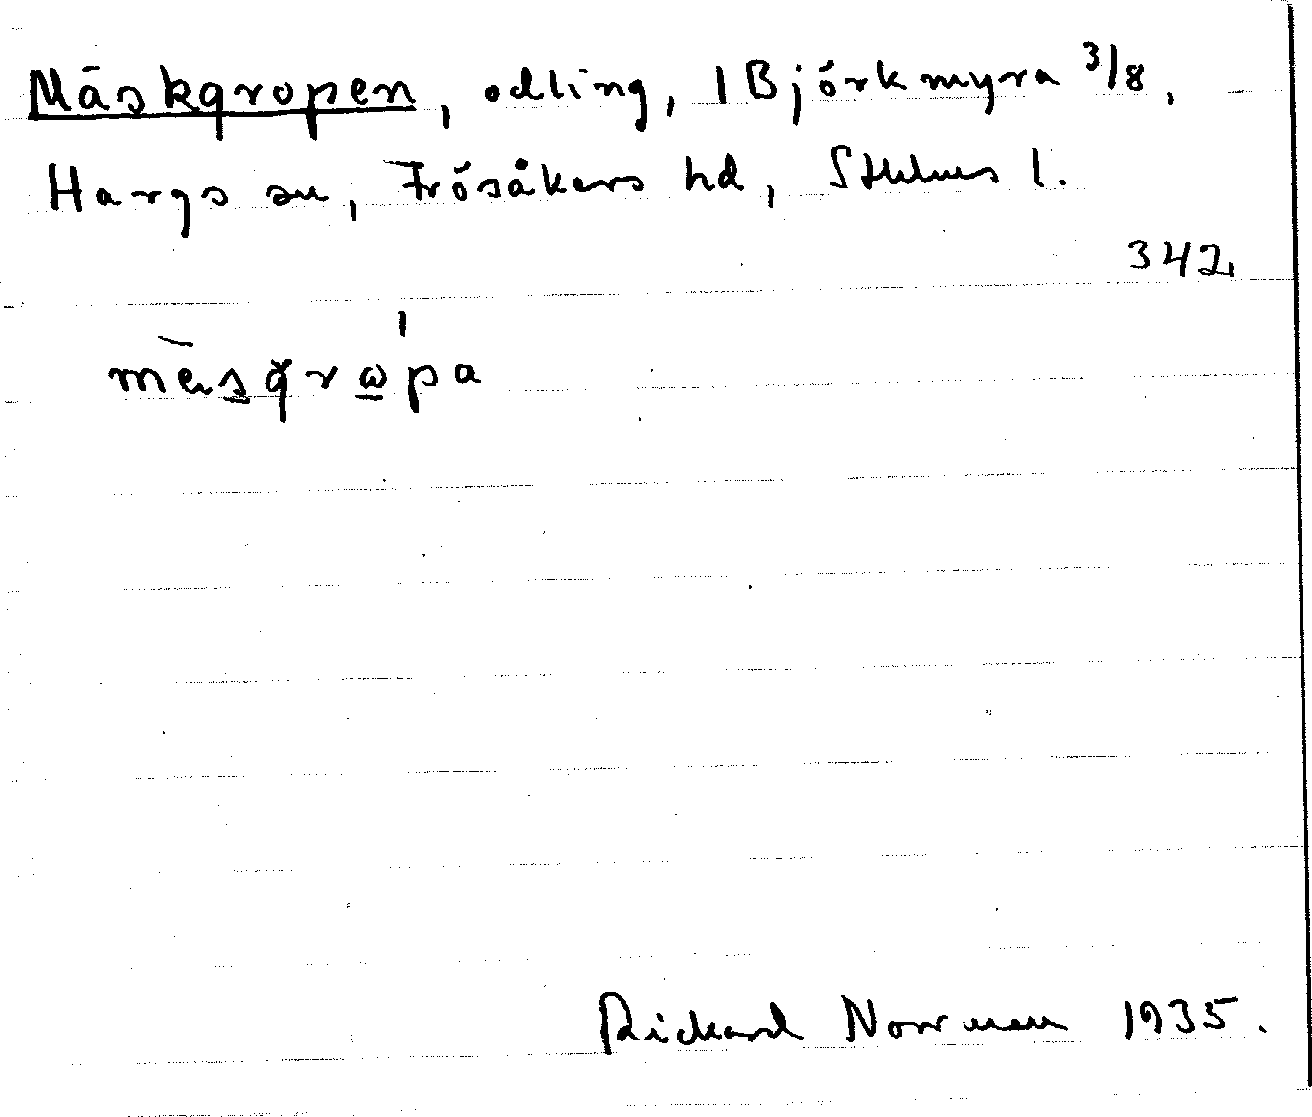 Mäskgropen, odling, 1 Björkmyra 3/8,
Hargs sn, Frösåkers hd, Sthlms l.
342
mäsgropa
Rickard Norrman 1935.